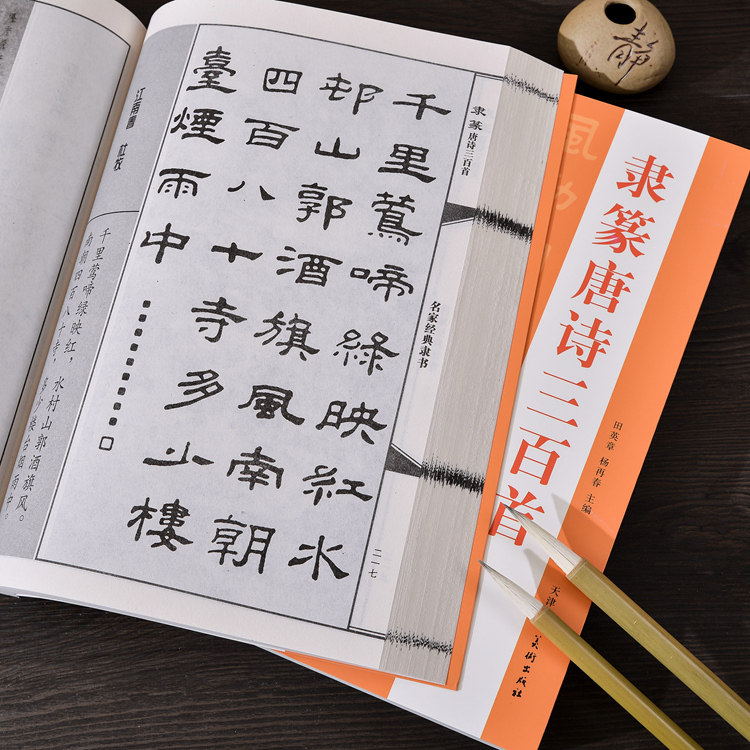 隶篆唐诗三百首
名家经典隶书
二一七
千里鶯啼綠映紅水
邨山郭酒旗風南朝
四百八十寺多少樓
臺煙雨中
江南春 杜牧
千里莺啼绿映红，水村山郭酒旗风。
南朝四百八十寺，多少楼台烟雨中。
隶篆唐诗三百首
田英章 杨再春 主编
天津
美术出版社
靜